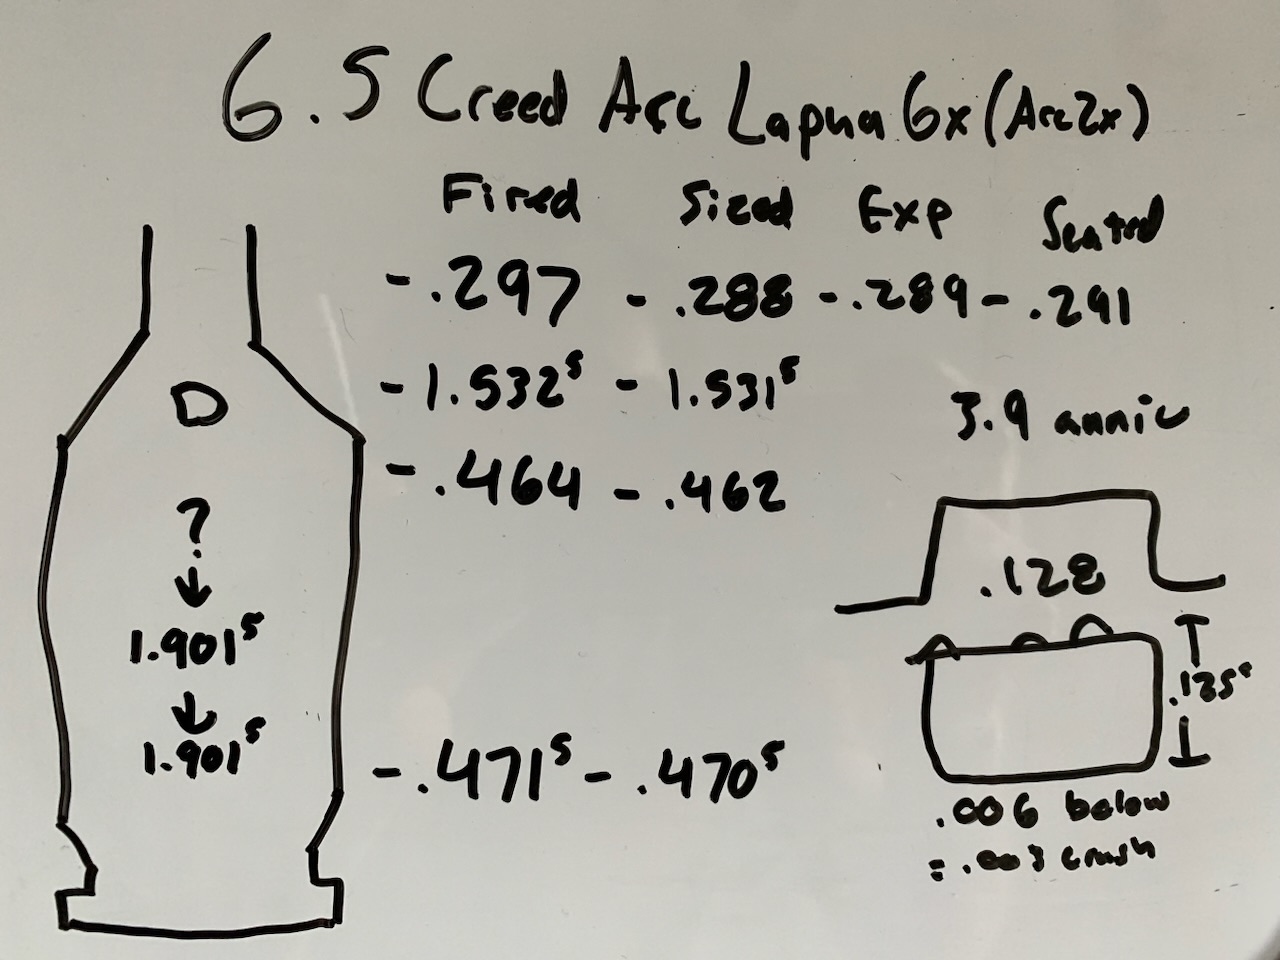 6.5 Creed Arc Lapua 6x (Arc 2x)
Fired Sized Exp Seated
- .297 - .288 - .289 - .291
- 1.532⁵ - 1.531⁵
3.9 annie
D
- .464 - .462
?
.128
1.901⁵
.125⁵
1.901⁵
- .471⁵ - .470⁵
.006 below
= .003 crush